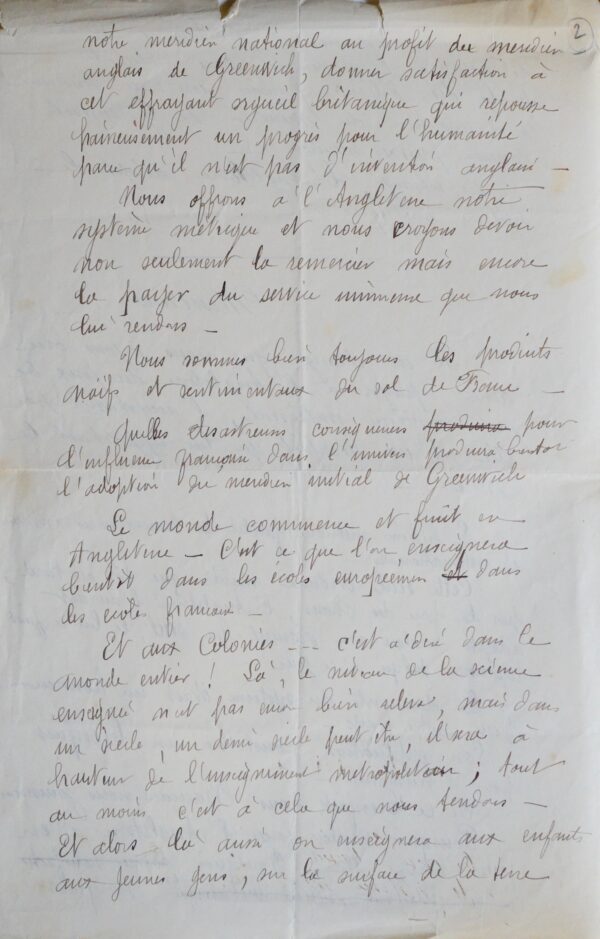 2
notre meridien national au profit du meridien
anglais de Greenwich, donner satisfaction à
cet effrayant orgueil britanique qui repousse
haineusement un progrès pour l'humanité
parce qu'il n'est pas d'invention anglaise —
Nous offrons à l'Angleterre notre
système métrique et nous croyons devoir
non seulement la remercier mais encore
la payer du service immense que nous
lui rendons —
Nous sommes bien toujours les produits
naïfs et sentimentaux du sol de France —
Quelles desastreuses consequences produira pour
l'influence française dans l'univers produira bientot
l'adoption du meridien initial de Greenwich
Le monde commence et finit en
Angleterre — C'est ce que l'on enseignera
bientôt dans les écoles européennes et dans
les écoles françaises —
Et aux Colonies --- c'est à dire dans le
monde entier ! Là, le niveau de la science
enseignée n'est pas encore bien relevé, mais dans
un siècle, un demi siècle peut être, il sera à
hauteur de l'enseignement metropolitain ; tout
au moins c'est à cela que nous tendons —
Et alors là aussi on enseignera aux enfants
aux jeunes gens ; sur la surface de la terre